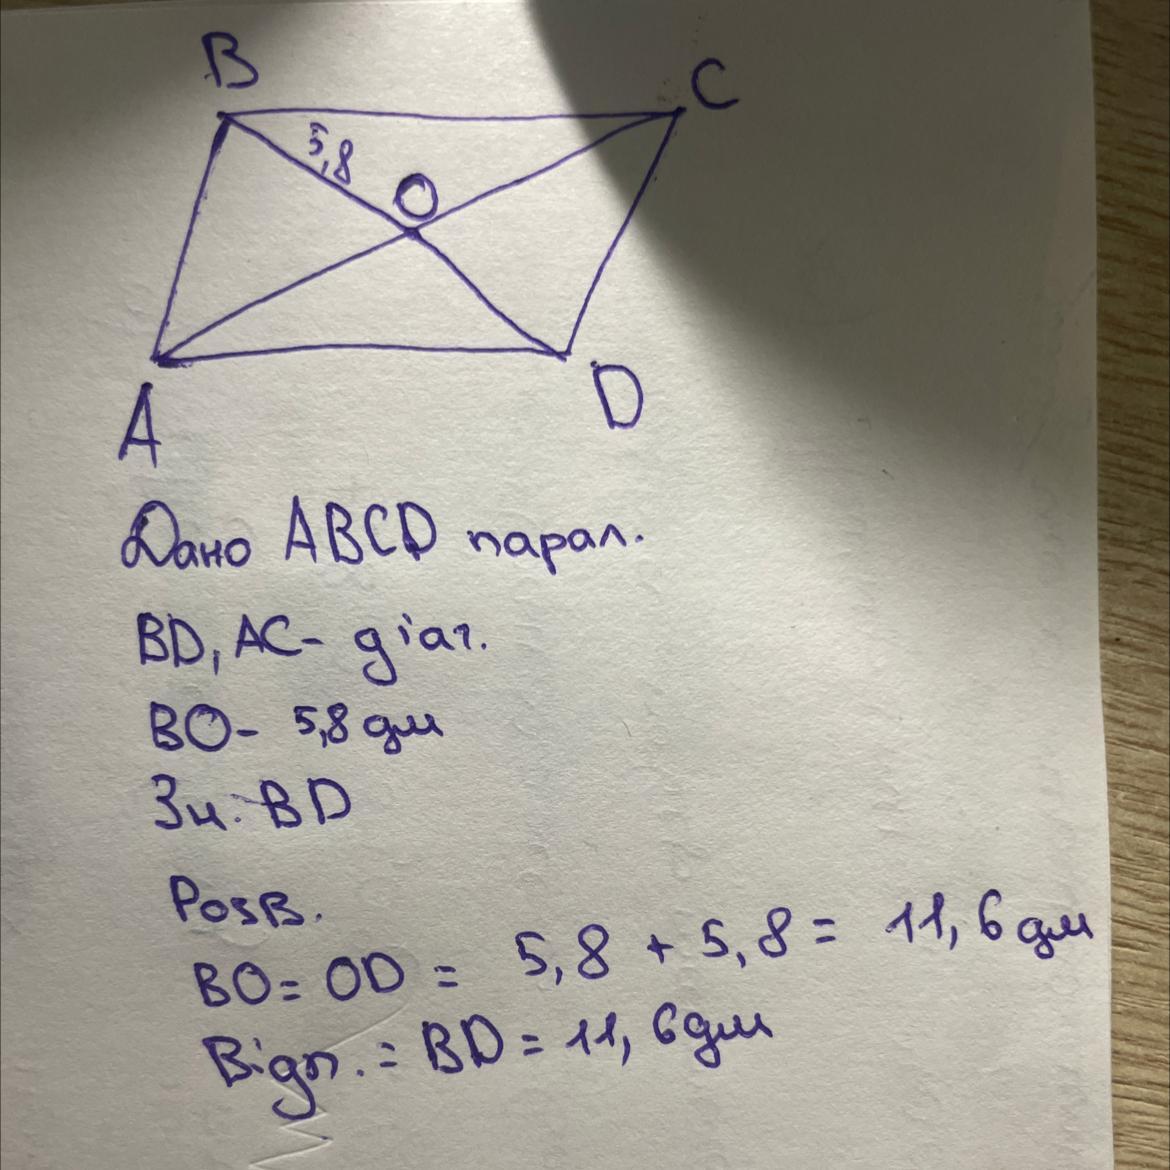 B
C
5,8
O
A
D
Дано ABCD парал.
BD, AC- діаг.
BO- 5,8 дм
Зн. BD
Розв.
BO= OD = 5,8 + 5,8 = 11,6 дм
Відп. = BD = 11,6 дм